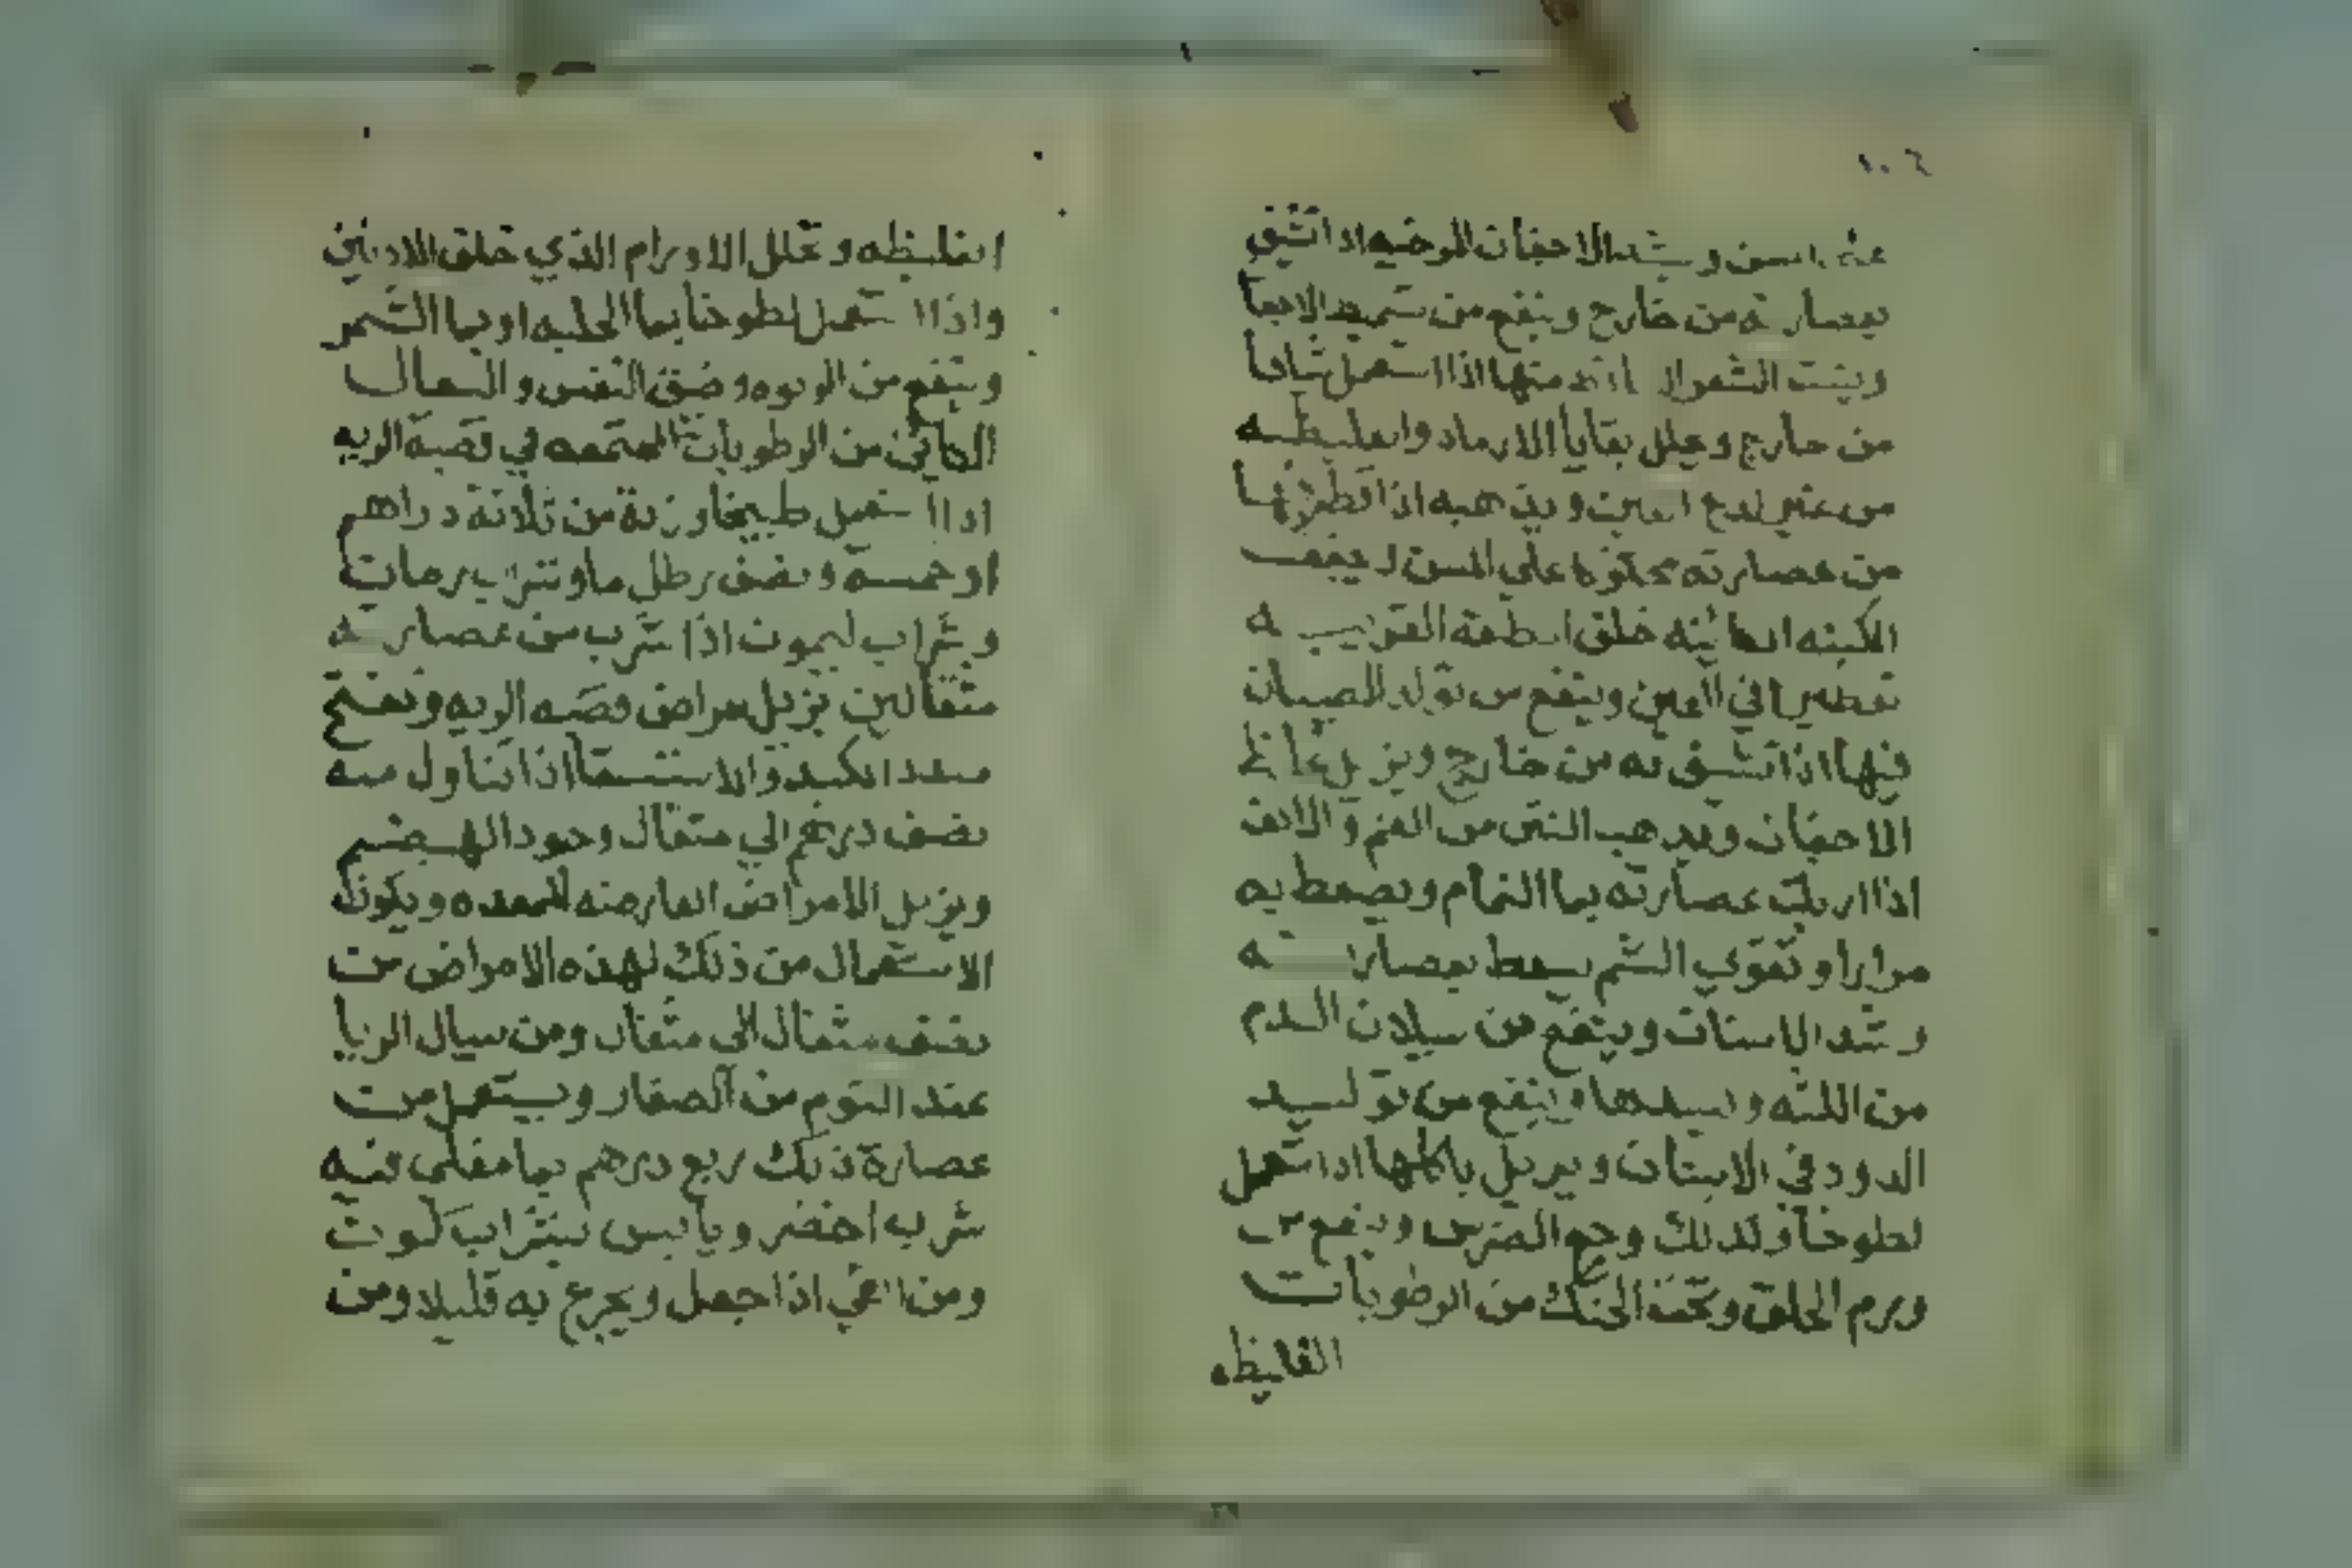 ١٠٦
وتشد الاجفان المرخيه اذا اتشق
بعصارته من خارج وينفع من سميط الاجفا
وينبت الشعر اذا استعمل شافا
من خارج وتحلل بقايا الارماد والغليظه
من غير لدع العين ويذهبه اذا قطر فيها
من عصارته محكوكه علي المسن
الكبنه خلق
تقطيرا في العين وينفع من تولد الصيبان
فيها اذا اتشق به من خارج ويزيل
الاجفان ويدهب النتن من الفم والانف
اذا اربيت عصارته بما النمام ويصعط به
مرارا وتقوي الشم بسعط بعصارته
وتشد الاسنان وينفع من سيلان الدم
من اللثه وينفع من توليد
الدود في الاسنان ويزيل باكلها اذا استعمل
لطوخا وكذلك وجع الضرس وينفع من
ورم الحلق ونحمة الحنك من الرطوبات
الغليظه
الغليظه وتحلل الاورام الذي خلق الادنين
واذا استعمل لطوخا بما الحلبه او بما الشمر
وينفع من الربوه وضق النفس والسعال
الكاين من الرطوبات المجتمعه في قصبة الريه
اذا استعمل طبيخا وزنة من ثلاثة دراهم
او خمسه ونصف رطل ما وشراب رمان
وشراب ليمون اذا شرب من عصارته
مثقالين تزيل امراض قصبه الريه وتفتح
سدد الكبد والاستسقا اذا تناول منه
نصف درهم الي مثقال وجود الهضم
ويزيل الامراض العارضه للمعده ويكون
الاستعمال من ذلك لهذه الامراض من
نصف مثقال الى مثقال ومن سيال الريا
عند النوم من الصغار ويستعمل من
عصارة ذلك ربع درهم بما مغلى فيه
شرب اخضر ويابس بشراب ليمون
ومن اذا جعل ويجرع به قليلا ومن